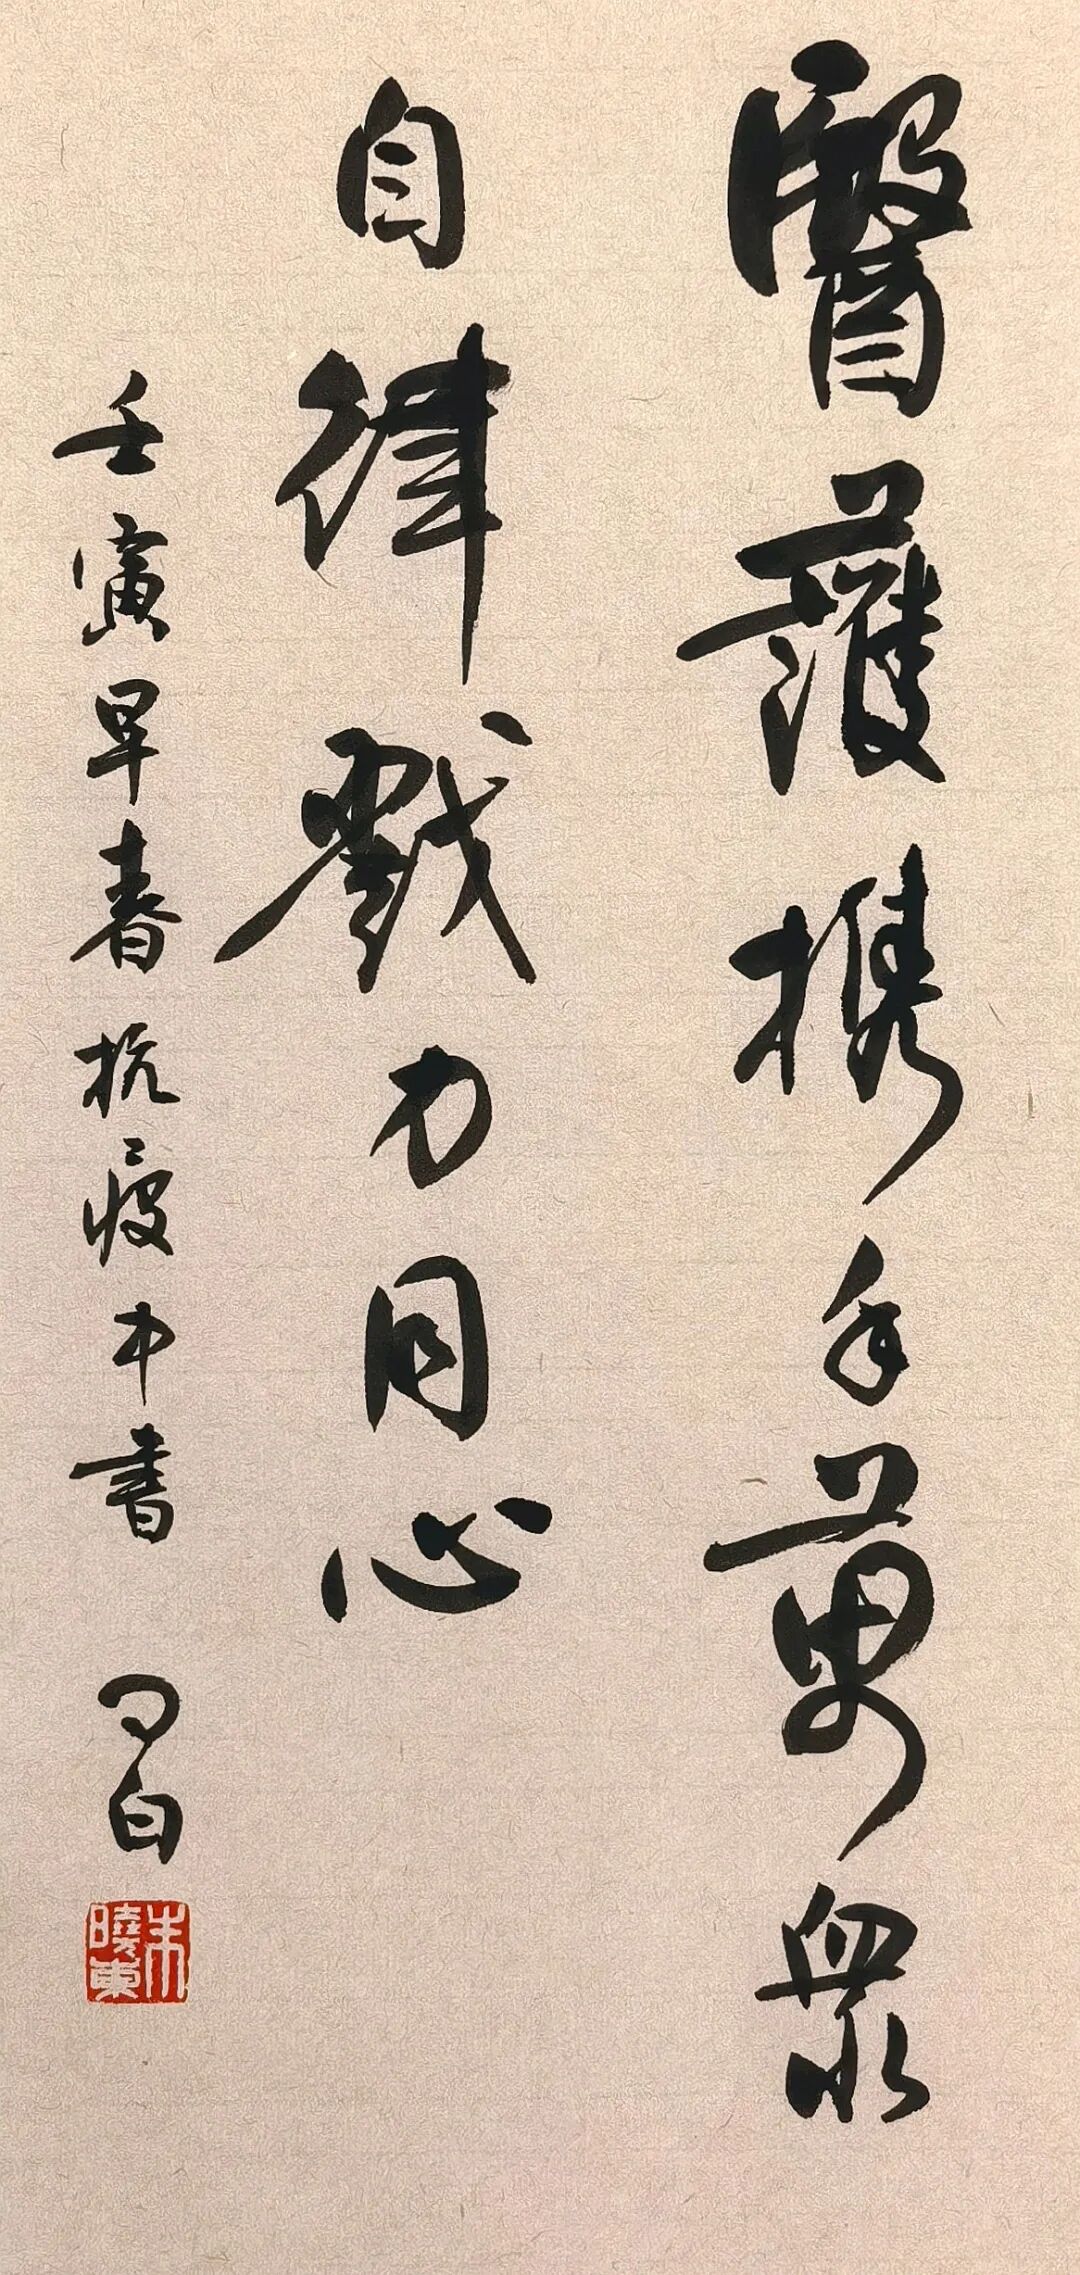 醫護携手萬衆
自律戮力同心
壬寅早春抗疫中書 白
朱曉東